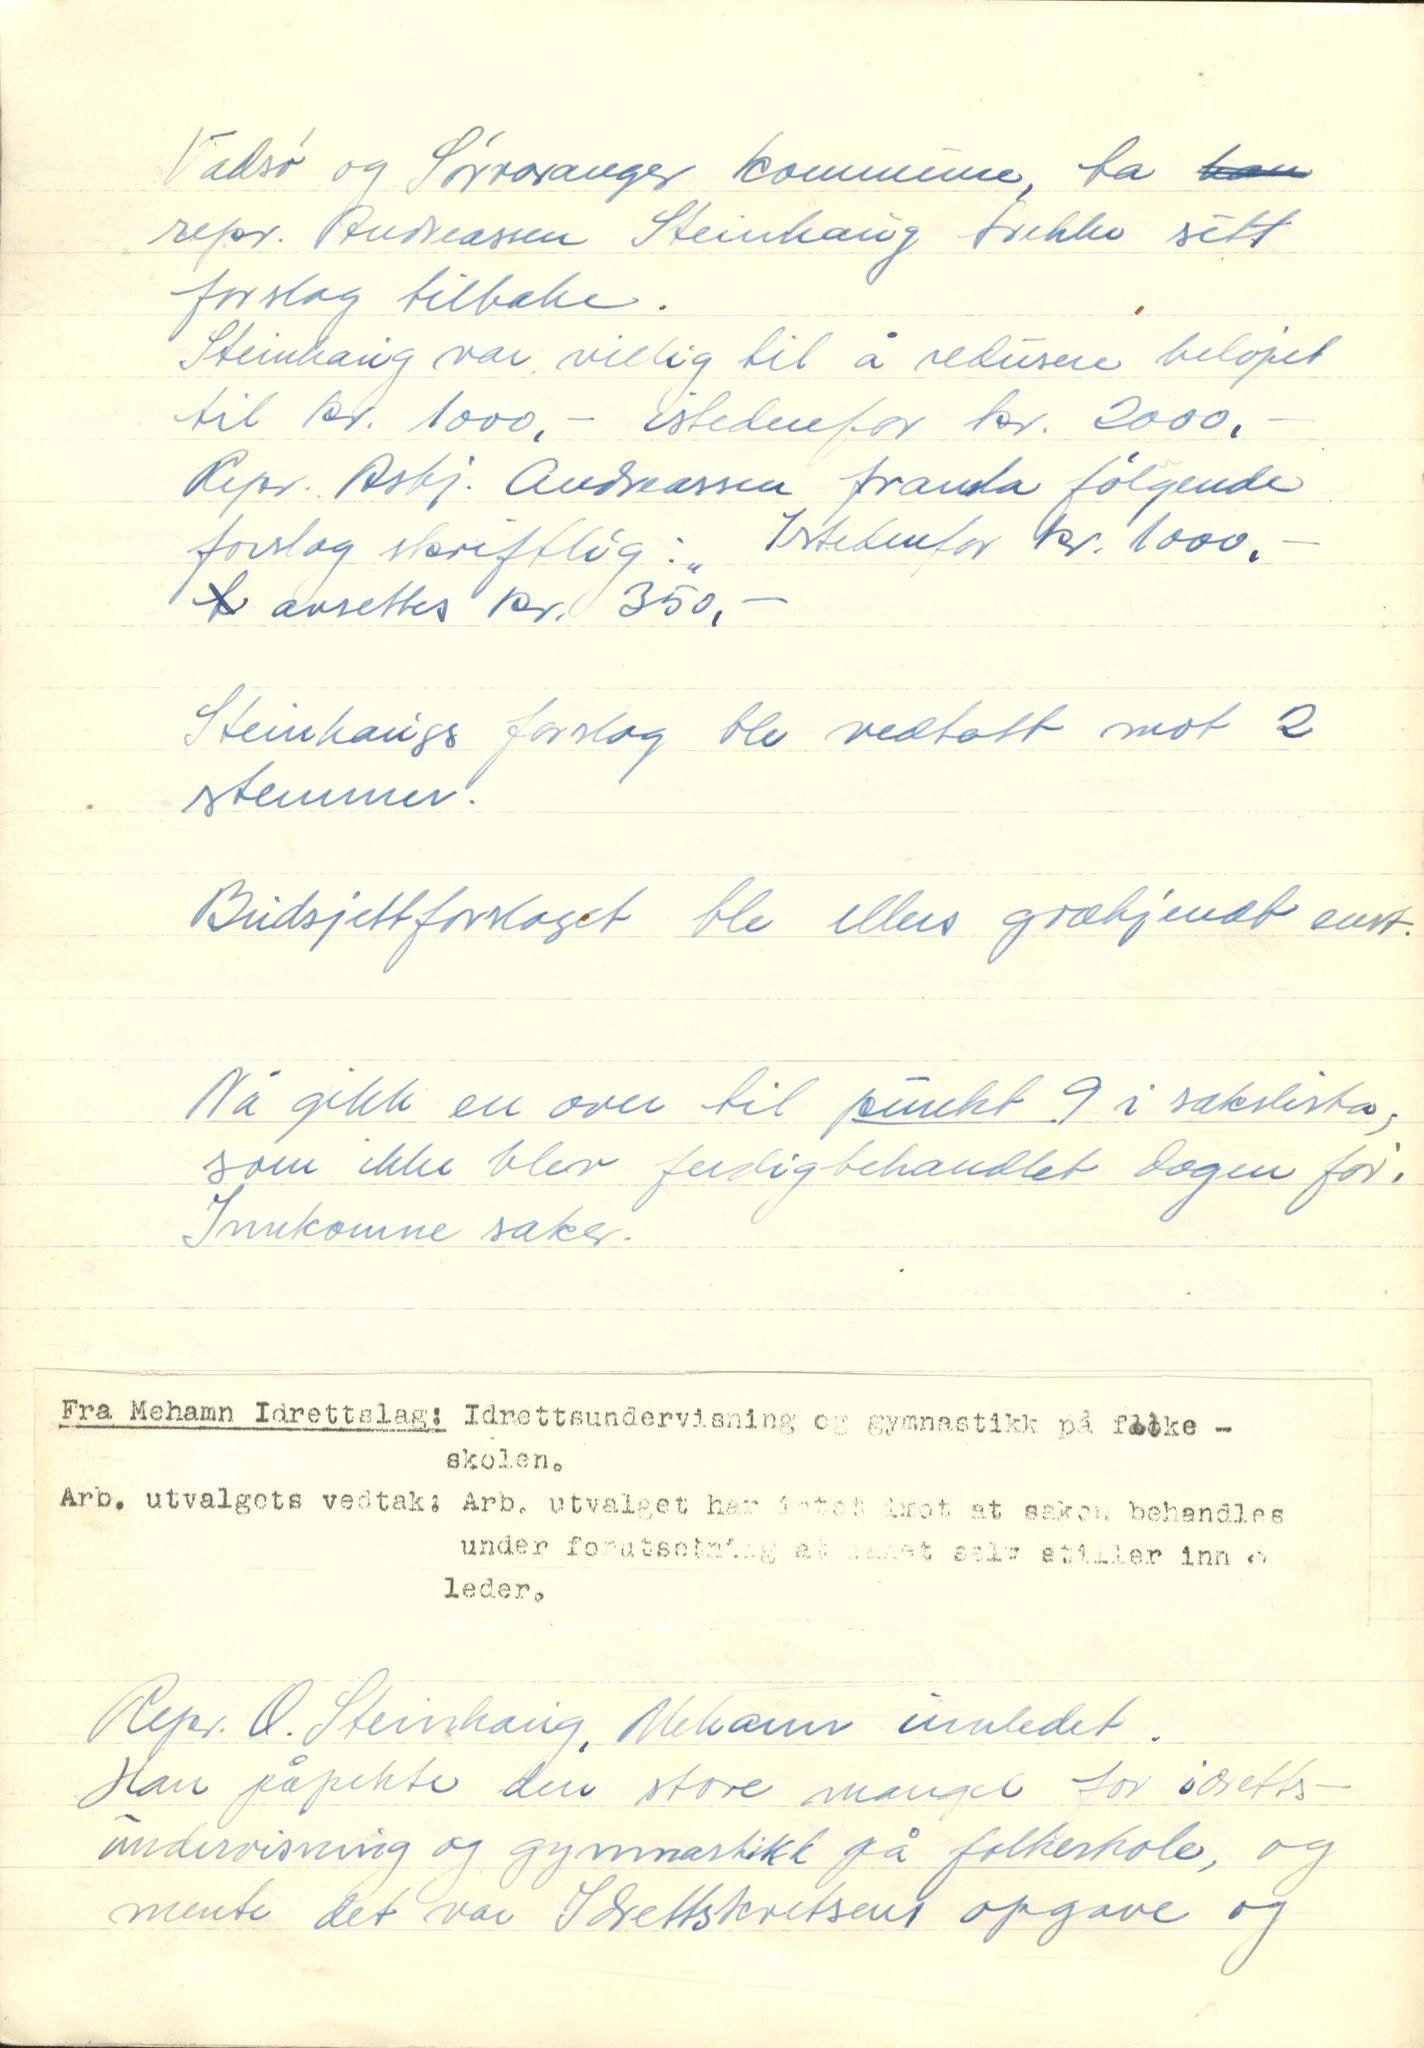 Vadsø og Sørvaranger kommune, ba han
repr. Andreassen Steinhaug trekke sitt
forslag tilbake.
Steinhaug var villig til å redusere beløpet
til kr. 1000,- istedenfor kr. 2000,-
Repr. Asbj. Andreassen framla følgende
forslag skriftlig: „Istedenfor kr. 1000,-
avsettes kr. 350,-
Steinhaugs forslag ble vedtatt mot 2
stemmer.
Budsjettforslaget ble ellers godkjendt enst.
Nå gikk en over til punkt 9 i sakslista,
som ikke blev ferdigbehandlet dagen før.
Innkomne saker.
Fra Mehamn Idrettslag: Idrettsundervisning og gymnastikk på folke -
skolen.
Arb. utvalgets vedtak: Arb. utvalget har intet imot at saken behandles
under forutsetning at laget selv stiller inn
leder.
Repr. O. Steinhaug, Mehamn innledet.
Han påpekte den store mangel for idretts-
undervisning og gymnastikk på folkeskole, og
mente det var Idrettskretsens opgave og